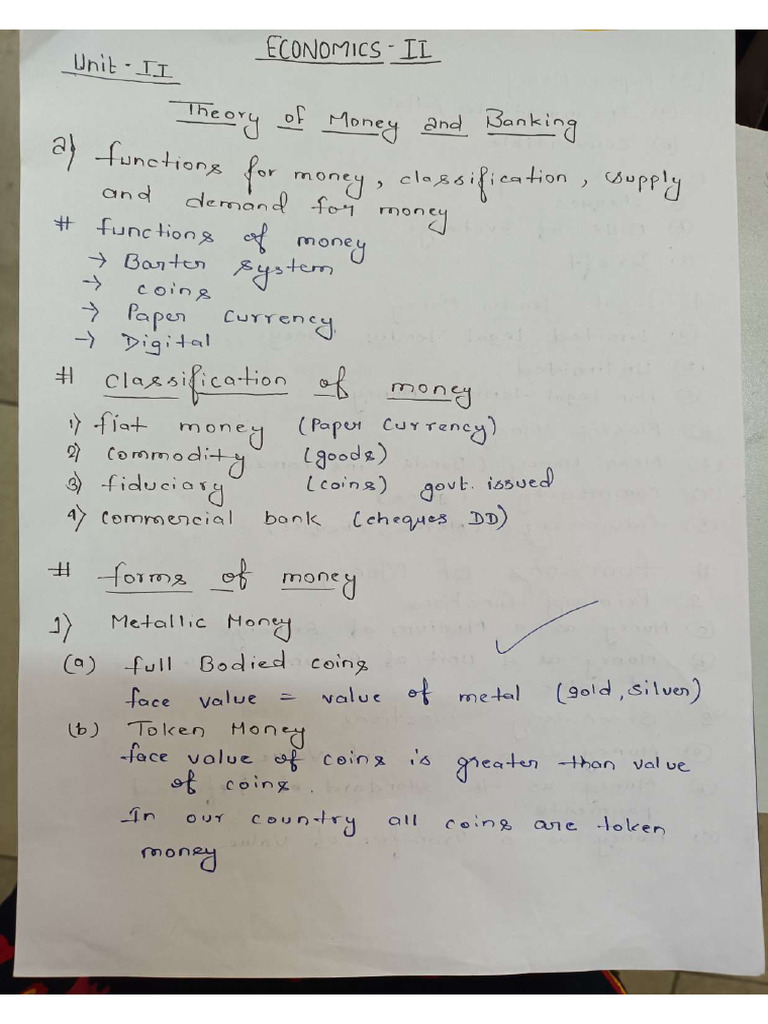 ECONOMICS - II
Unit - II
Theory of Money and Banking
a) functions for money, classification, supply
and demand for money
# functions of money
→ Barter system
→ coins
→ Paper currency
→ Digital
# classification of money
1) fiat money (Paper currency)
2) commodity (goods)
3) fiduciary (coins) govt. issued
4) commercial bank (cheques DD)
# forms of money
1) Metallic Money
(a) full Bodied coins
face value = value of metal (gold, silver)
(b) Token Money
face value of coins is greater than value
of coins.
In our country all coins are token
money